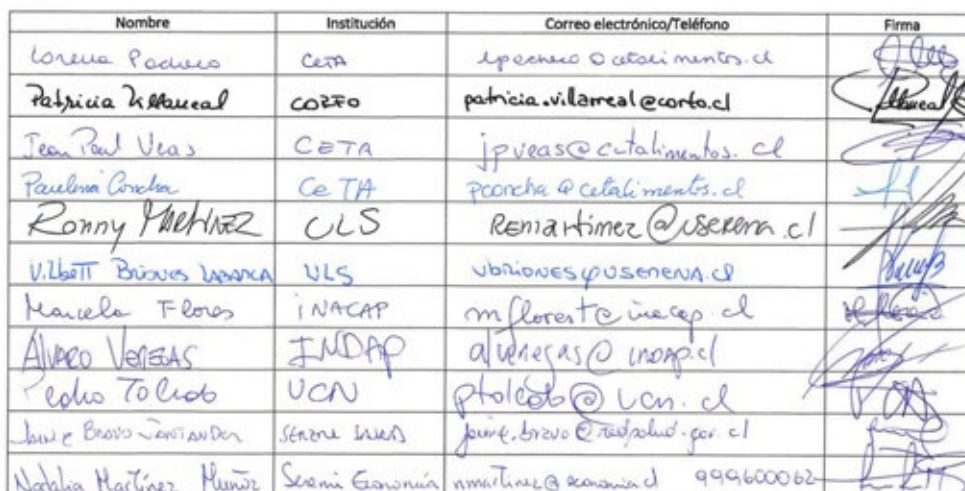 Nombre Institución Correo electrónico/Teléfono Firma
Lorena Pacheco CeTA lpacheco@cetalimentos.cl
Patricia Villarreal CORFO patricia.villarreal@corfo.cl
Jean Paul Veas CETA jpveas@cetalimentos.cl
Paulina Concha CeTA pconcha@cetalimentos.cl
Ronny MARTINEZ ULS Remartinez@userena.cl
Vilbett BRIONES LABARCA ULS vbriones@USERENA.cl
Marcela Flores INACAP mflorest@inacap.cl
ALVARO VENEGAS INDAP alvenegas@INDAP.cl
Pedro Toledo UCN ptoledo@ucn.cl
Jaime BRAVO SANTANDER jaime.bravo@redsalud.gov.cl
Natalia Martínez Muñoz Seremi Economía nmartinez@economia.cl 999600062